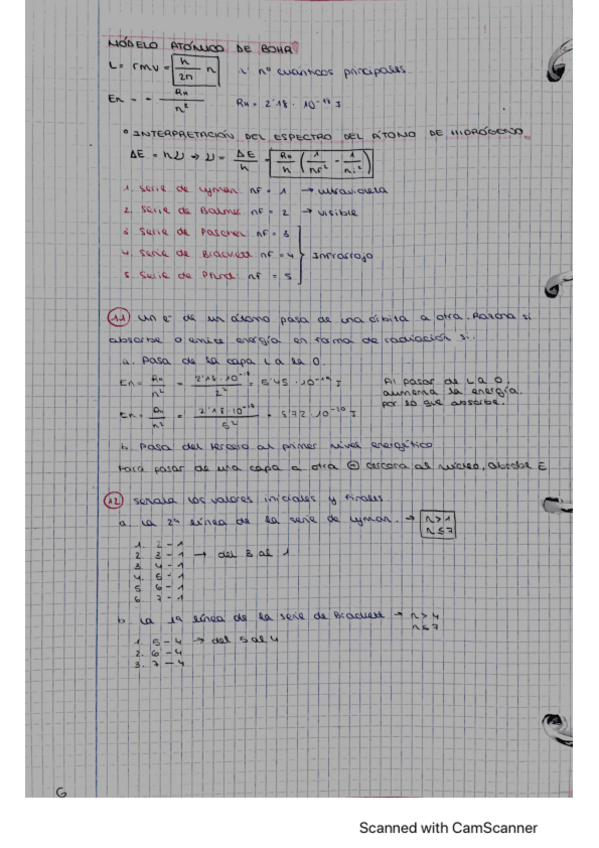 MÓDELO ATÓMICO DE BOHR
L = rmv = h/2π n n: nº cuánticos principales
En = - RH/n² RH = 2'18 · 10⁻¹⁸ J
° INTERPRETACIÓN DEL ESPECTRO DEL ÁTOMO DE HIDRÓGENO
ΔE = hν → ν = ΔE/h = RH/h (1/nf² - 1/ni²)
1. Serie de Lyman nf = 1 → ultravioleta
2. Serie de Balmer nf = 2 → visible
3. Serie de Paschen nf = 3
4. Serie de Brackett nf = 4 } Infrarrojo
5. Serie de Pfund nf = 5
11 Un e⁻ de un átomo pasa de una órbita a otra. Razona si
absorbe o emite energía en forma de radiación si..
a. Pasa de la capa L a la O.
En = RH/n² = 2'18 · 10⁻¹⁸/2² = 5'45 · 10⁻¹⁹ J
Al pasar de L a O,
aumenta la energía,
por lo que absorbe.
En = RH/n² = 2'18 · 10⁻¹⁸/5² = 8'72 · 10⁻²⁰ J
b. Pasa del tercero al primer nivel energético
Para pasar de una capa a otra + cercana al núcleo, absorbe E
12 Señala los valores iniciales y finales
a. La 2ª línea de la serie de Lyman. → n > 1
n ≤ 7
1. 2 - 1
2. 3 - 1 → del 3 al 1
3. 4 - 1
4. 5 - 1
5. 6 - 1
6. 7 - 1
b. La 1ª línea de la serie de Brackett → n > 4
n ≤ 7
1. 5 - 4 → del 5 al 4
2. 6 - 4
3. 7 - 4
G
Scanned with CamScanner